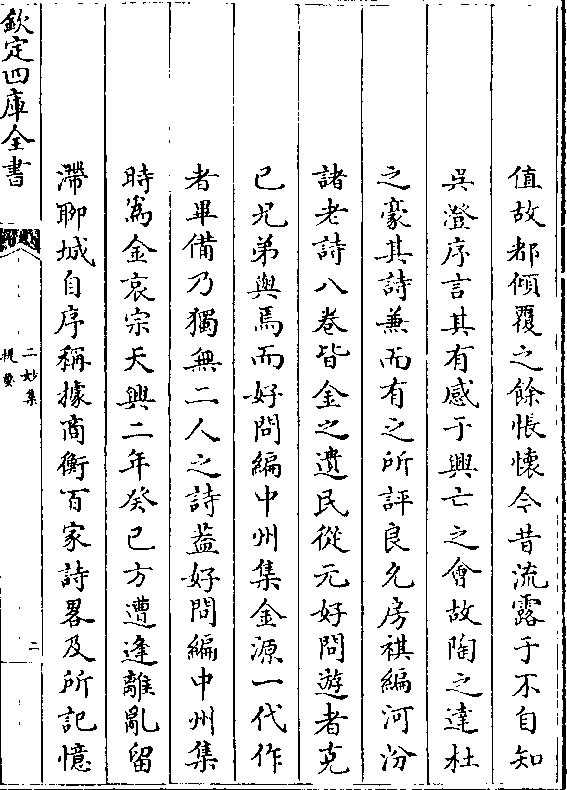 值故都傾覆之餘悵懷今昔流露于不自知
吳澄序言其有感于興亡之會故陶之達杜
之豪其詩兼而有之所評良允房祺編河汾
諸老詩八卷皆金之遺民從元好問遊者克
已兄弟與焉而好問編中州集金源一代作
者畢備乃獨無二人之詩蓋好問編中州集
時為金哀宗天興二年癸巳方遭逢離亂留
滯聊城自序稱據商衡百家詩畧及所記憶
欽定四庫全書
二妙集
提要
二